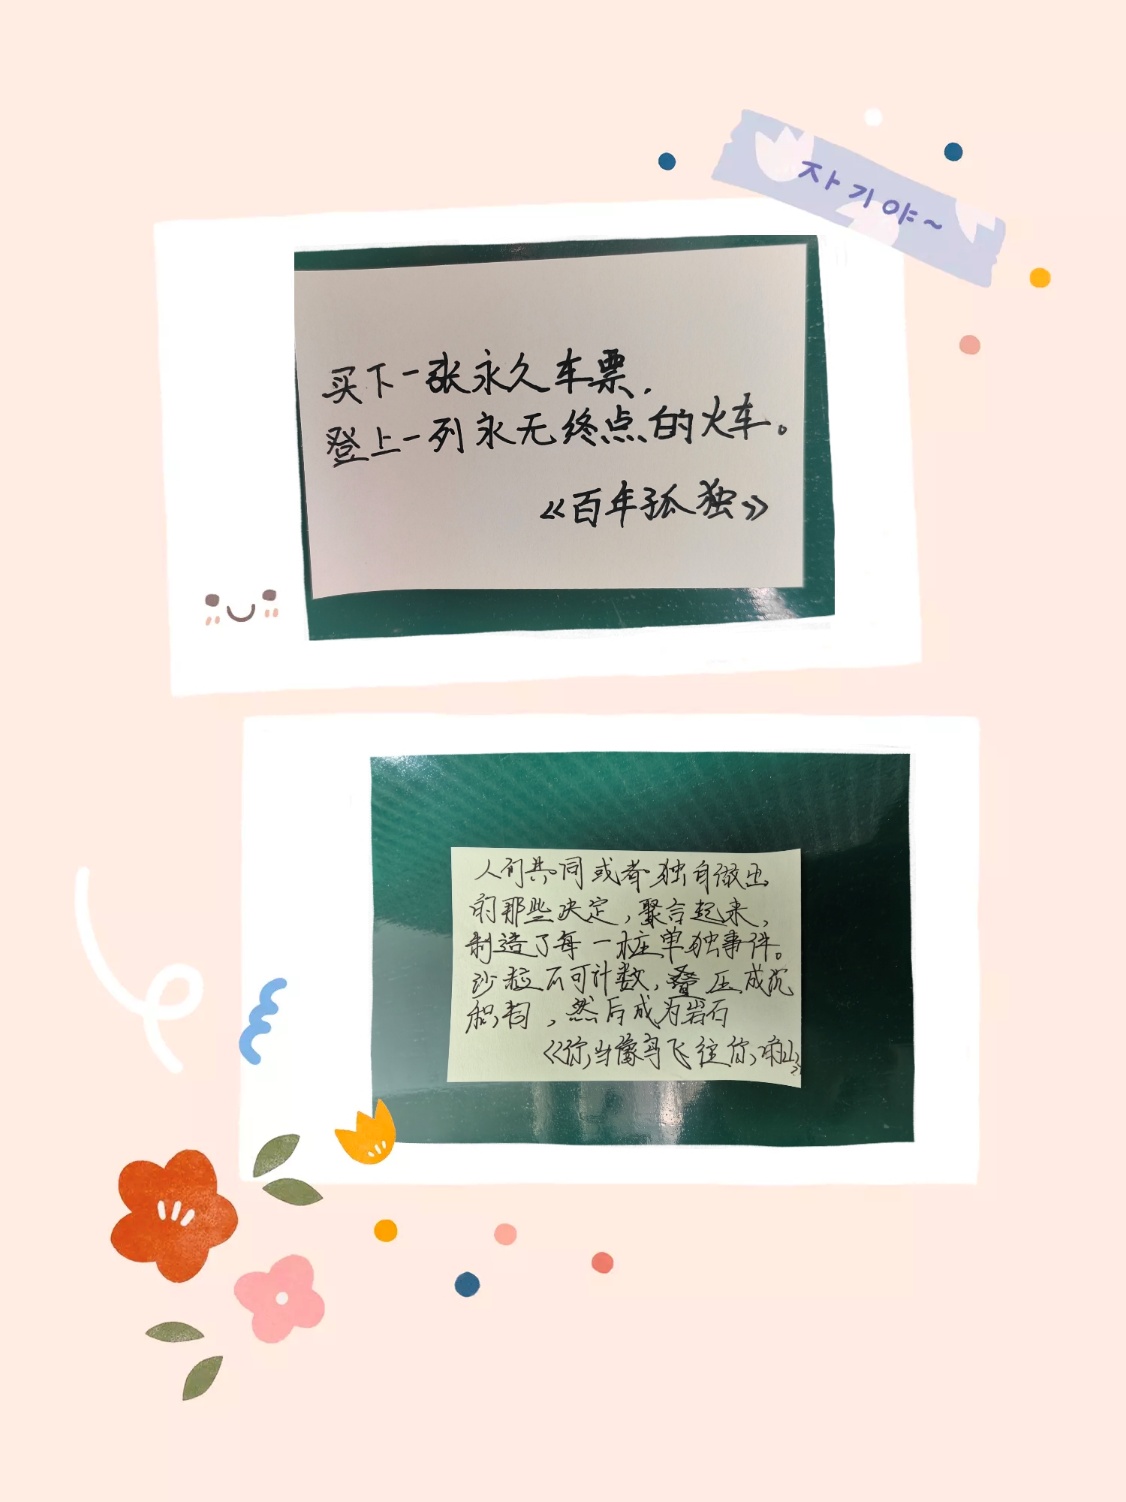 자기야~
买下一张永久车票,
登上一列永无终点的火车。
《百年孤独》
人们共同或者独自做出
的那些决定，聚合起来，
制造了每一桩单独事件。
沙粒不可计数，叠压成沉
积物，然后成为岩石
《你当像鸟飞往你的山》